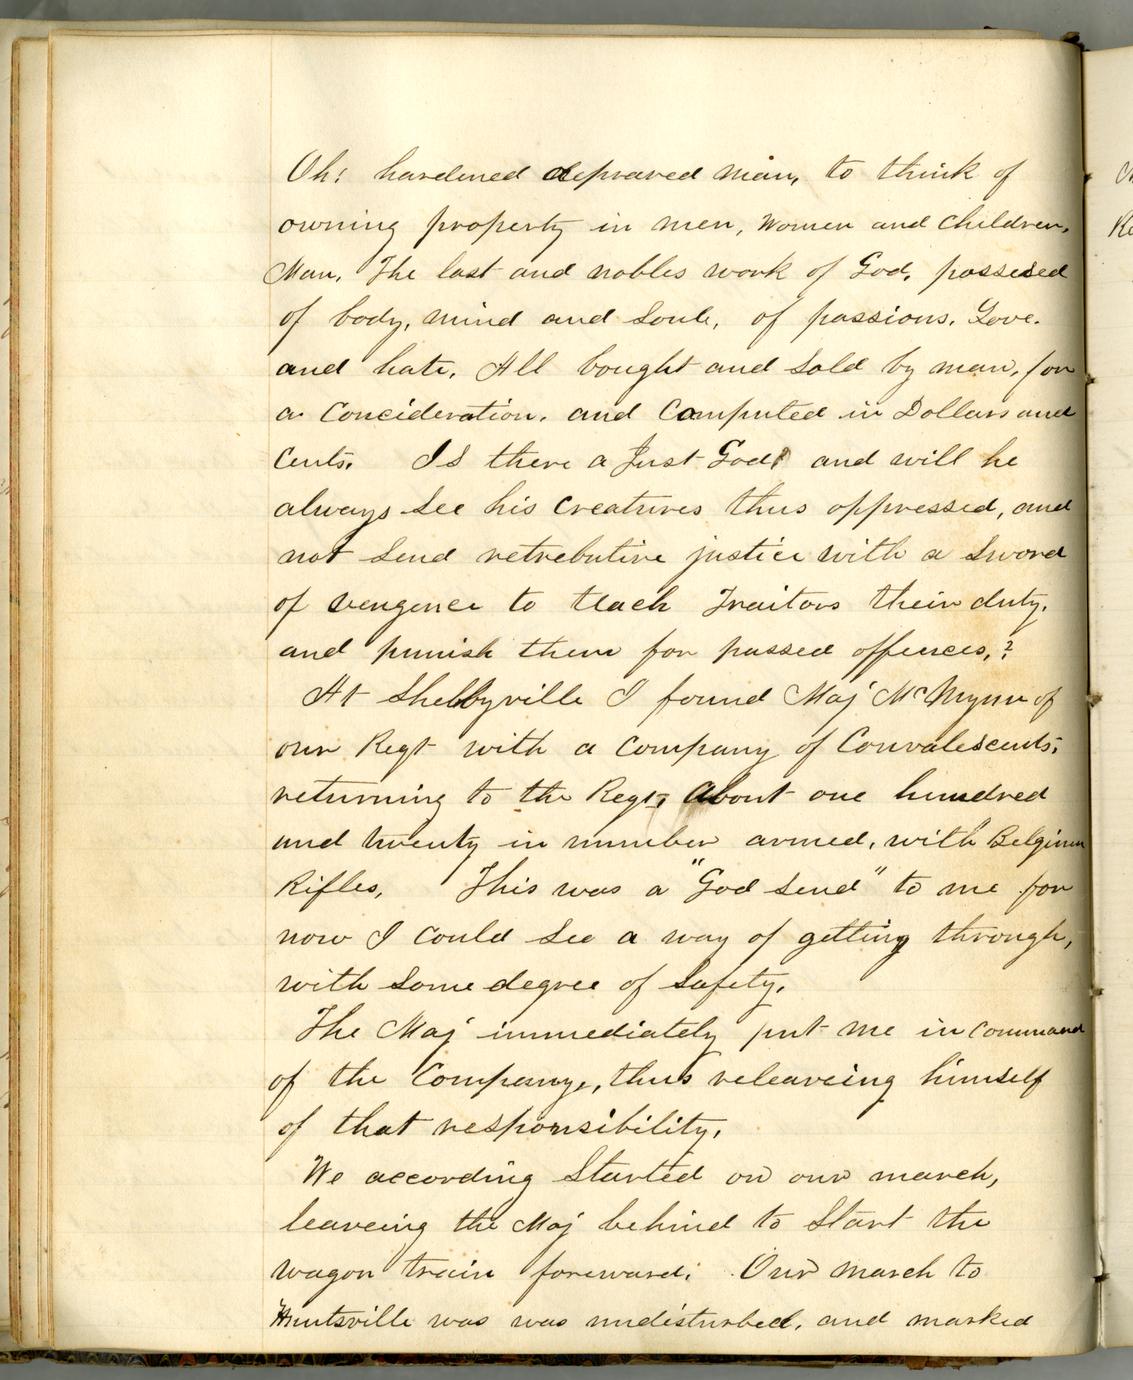 Oh! hardened depraved man, to think of
owning property in men, women and children,
Man, The last and nobles work of God, possesed
of body, mind and Soul, of passions, Love.
and hate, All bought and Sold by man, for
a Concideration, and Computed in Dollars and
Cents. Is there a Just God? and will he
always See his Creatures thus oppressed, and
not Send retrebutive justice with a Sword
of vengence to teach Traitors their duty,
and punish them for passed offences,?
At Shelbyville I found Maj McMynn of
our Regt with a Company of Convalescents,
returning to the Regt, About one hundred
and twenty in number armed, with Belgium
Rifles, This was a "God Send" to me for
now I could See a way of getting through,
with Some degree of Safety,
The Maj immediately put me in Command
of the Company, thus releaveing himself
of that responsibility,
We according Started on our march,
leaveing the Maj behind to Start the
wagon train foreward. Our march to
Huntsville was was undisturbed, and marked